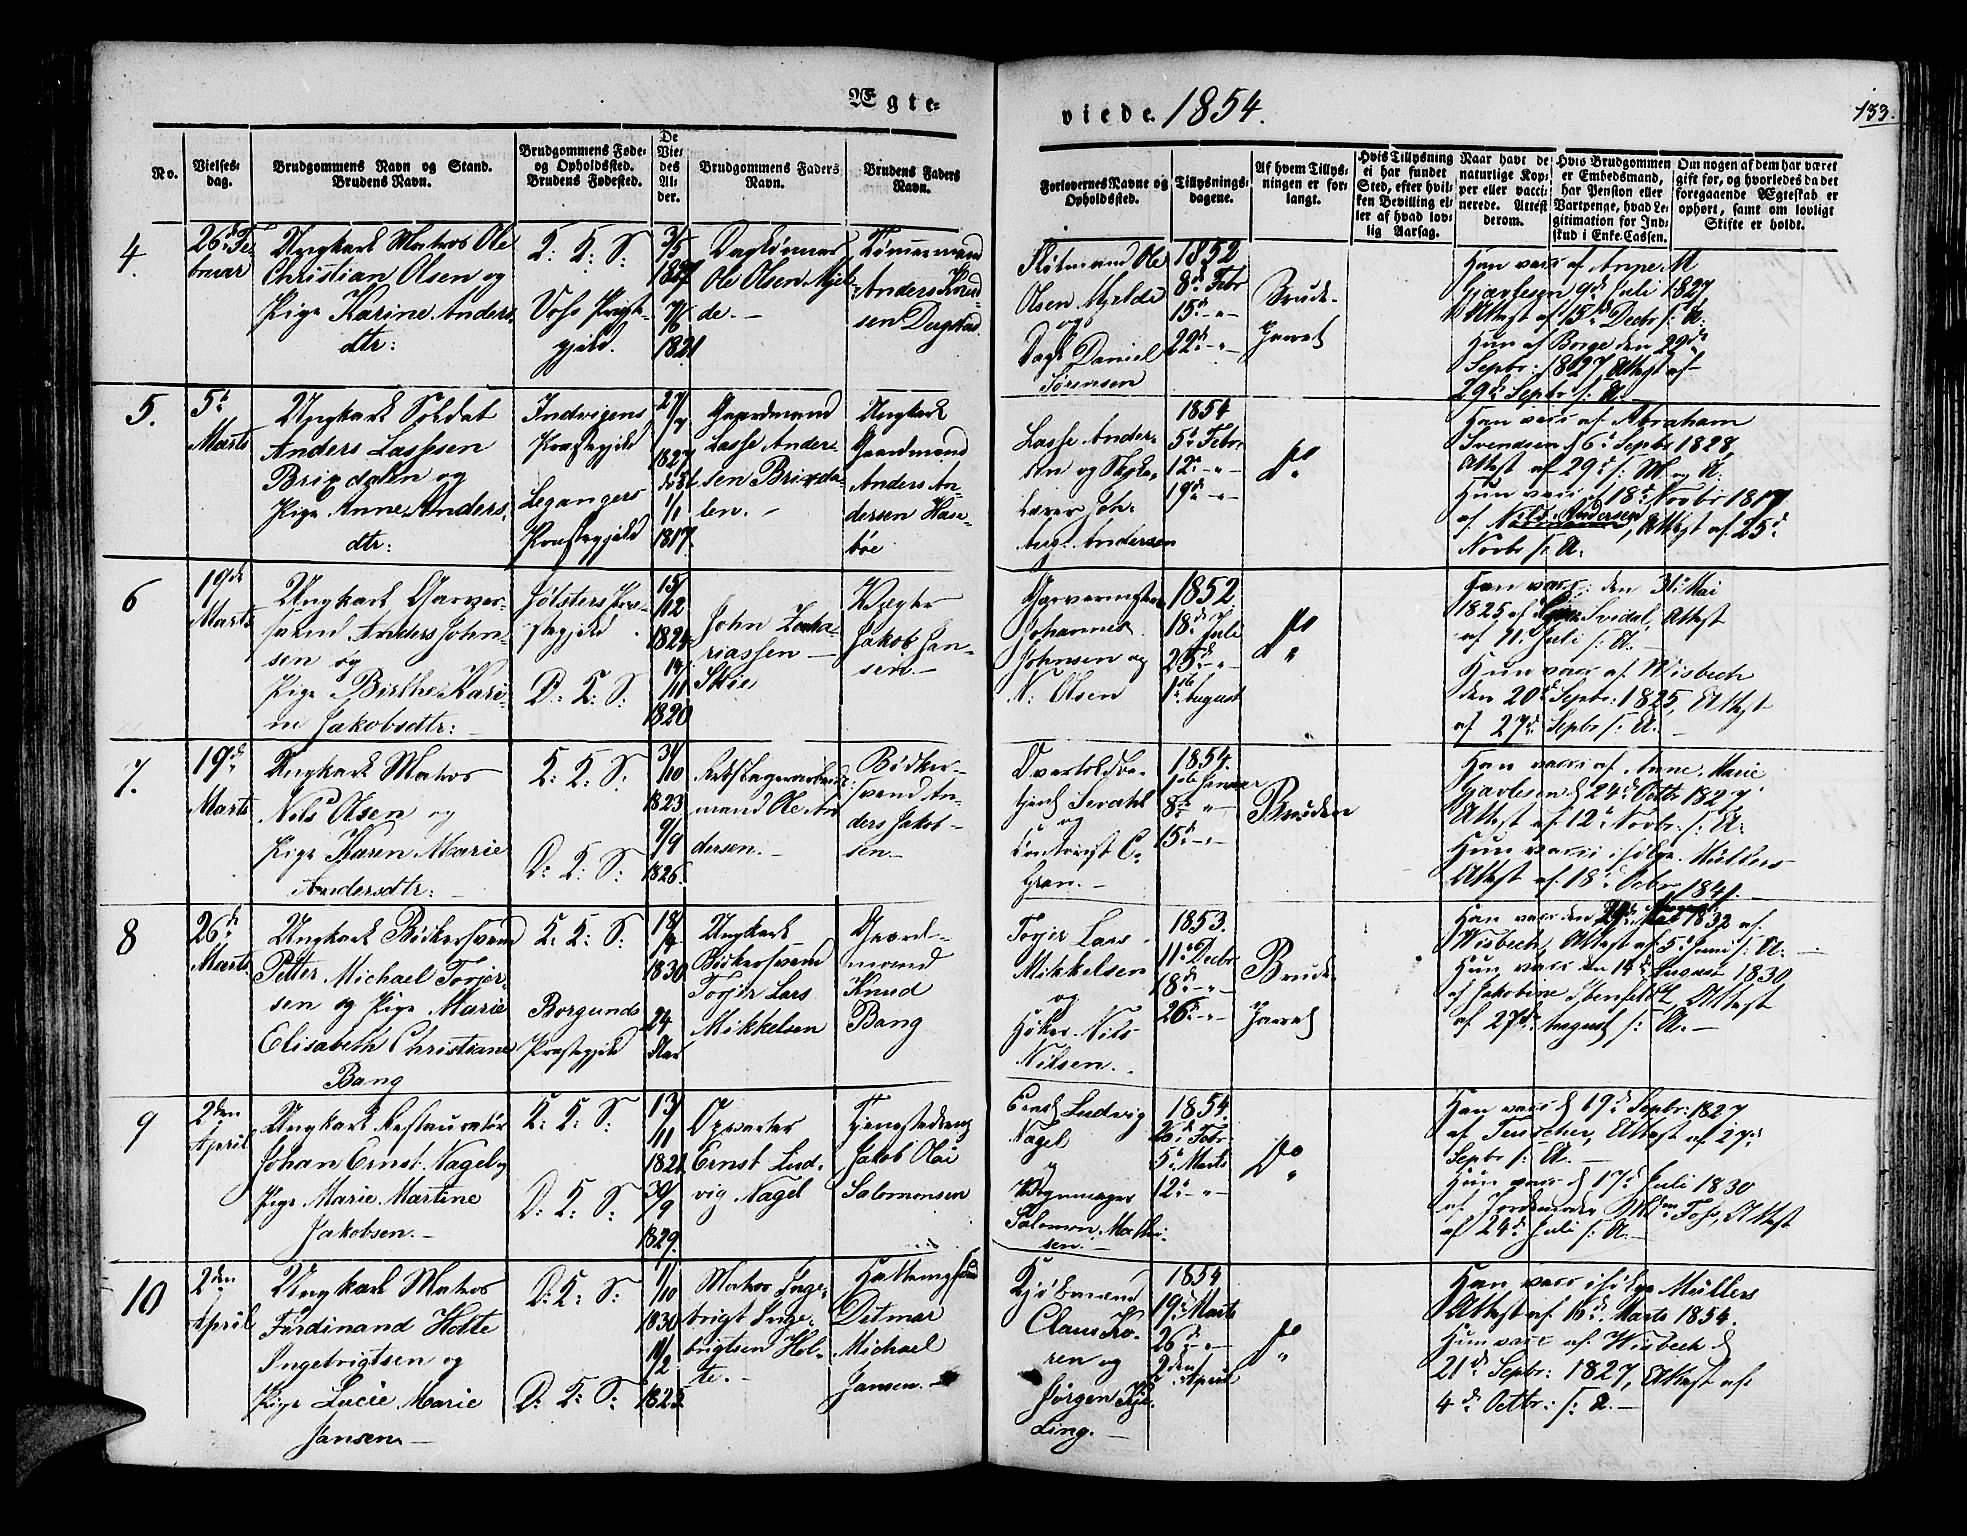 Ægte-
viede 1854.
153.
No.
Vielses-
dag.
Brudgommens Navn og Stand.
Brudens Navn.
Brudgommens Føde-
og Opholdssted.
Brudens Fødested.
De
Vie-
des
Al-
der.
Brudgommens Faders
Navn.
Brudens Faders
Navn.
Forlovernes Navne og
Opholdssted.
Tillysnings-
dagene.
Af hvem Tillys-
ningen er for-
langt.
Hvis Tillysning
ei har fundet
Sted, efter hvil-
ken Bevilling el-
ler af hvad lov-
lig Aarsag.
Naar havt de
naturlige Kop-
per eller vacci-
nerede. Attest
derom.
Hvis Brudgommen
er Embedsmand,
har Pension eller
Vartpenge, hvad Le-
gitimation for Ind-
skud i Enke-Cassen.
Om nogen af dem har været
gift før, og hvorledes da det
foregaaende Ægteskab er
ophørt, samt om lovligt
Skifte er holdt.
4.
26d Fe
bruar
Ungkarl Matros Ole
Christian Olsen og
Pige Karine Anders-
dtr:
D: D: S:
Voss Præste-
gjeld.
3/5
1827
7/6
1821
Dagkönnar
Ole Olsen Mjel-
de. –
Tömmermand
Anders Knud-
sen Dugstad
Flötmand Ole
Olsen Mjelde
og
Dagk. Daniel
Sørensen
1852
8d Febr
15d – „ –
22d – „ –
Brud-
gommen
Han vacc af Anne M
Gjarlesen 9d Juli 1827,
Attest af 15d Decbr s: A:
Hun af Borge den 22de
Septbr: 1827 Attest af
29d Septbr s: A:
5.
5t
Marts
Ungkarl Soldat
Anders Lassesen
Brixdalen og
Pige Anne Anders-
dtr:
Indvigens
Præstegjeld
Legangers
Præstegjeld
27/7
1827
1/1
1817.
Gaardmand
Lasse Ander-
sen Brixda-
len. –
Ungkarl
Gaardmand
Anders An-
dersen Husa-
böe
Lasse Ander-
sen og Skole-
Lærer Joh:
Aug: Andersen
1854
5t Febr
12t – „ –
19d – „ –
Do
Han vacc af Abraham
Svendsen d 6t Septbr 1828,
Attest af 29d s: M og A:
Hun vacc d 18d Novbr 1817
af Nils Andersen, Attest af 25d
Novbr s: A:
6
19de
Marts
Ungkarl Garver-
svend Anders John-
sen og
Pige Birthe Kari-
ne Jakobsdtr: –
Jølsters Præ-
stegjeld
D: D: S:
15/12
1824
14/11
1820
John Zacha-
riassen –
Skøie
Vægter
Jakob Jan-
sen. –
Garvermester
Johannes
Johnsen og
N: Olsen
1852
18de Juli
25d – „ –
1ste August
Do
Han vacc: den 31t Mai
1825 af Svidal, Attest
af 11t Juli s: A: –
Hun vacc af Wisbech
den 20d Septbr: 1825, Attest
af 27d Septbr s: A: –
7.
19d
Marts
Ungkarl Matros
Nils Olsen og
Pige Karen Marie
Andersdtr: –
D: D: S:
D: D: S:
31/10
1823
9/9
1826
Rebslagerarbeids-
mand Ole An-
dersen. –
Bødker-
svend An-
ders Jakob-
sen. –
Overtoldbe-
tjent Seraht
og
Contorist C:
Gran. –
1854.
1ste Januar
8de „ –
15d – „ –
Bruden
Han vacc af Anne Marie
Gjarlesen d 24d Octbr 1827.
Attest af 12t Novbr: s: A:
Hun vacc ifølge Müllers
Attest af 18d Octbr 1841. –
8
26d
Marts
Ungkarl Bödkersvend
Petter Michael Torjer-
sen og Pige Marie
Elisabeth Christiane
Bang
D: D: S:
Borgunds
Præstegjeld
18/4
1830
24
Aar
Ungkarl
Bödkersvend
Torjer Lars
Mikkelsen
Gaard-
mand
Knud
Bang
Torjer Lars
Mikkelsen
og
Høker Nils
Nilsen. –
1853.
11t Decbr
18d – „ –
26t – „ –
Brud-
gommen
Han vacc den 29d 1832 af
Wisbech, Attest af 5t Juni s: A: –
Hun vacc den 14d August 1830
af Jakobine Ibenfeldt, Attest
af 27d August s: A. –
9
2den
April
Ungkarl Restauratør
Johan Ernst Nagel og
Pige Marie Martine
Jakobsen. –
D: D: S:
D: D: S:
13/11
1821
30/9
1829.
Opvarter
Ernst Lud-
vig Nagel
Tjenestedreng
Jakob Olai
Salomonsen
Ernst Ludvig
Nagel
og
Vognmager
Salomon Mathi-
sen. –
1854.
26t Febr
5t Marts
12t – „ –
Do
Han vacc d 19d Septbr: 1827
af Teuscher, Attest af 27d
Septbr s: A. –
Hun vacc d 17d Juli 1830
af Jordemoder Mdm Foss, Attest
af 24d Juli s: A. –
10
2den
April
Ungkarl Matros
Ferdinand Holte
Ingebrigtsen og
Pige Lucie Marie
Jansen. –
D: D: S:
D: D: S:
1/10
1830
11/2
1825
Matros Inge-
brigt Inge-
brigtsen Hol-
te. –
Hattemagersvend
Ditmar
Michael
Jansen. –
Kjöbmænd
Claus Ko-
ren og
Jørgen Kjel-
ding. –
1854
19d Marts
26d – „ –
2den April
Do
Han vacc ifølge Müllers
Attest af 16d Marts 1854.
Hun vacc af Wisbech d
21d Septbr: 1827, Attest af
4d Octbr: s: A. –